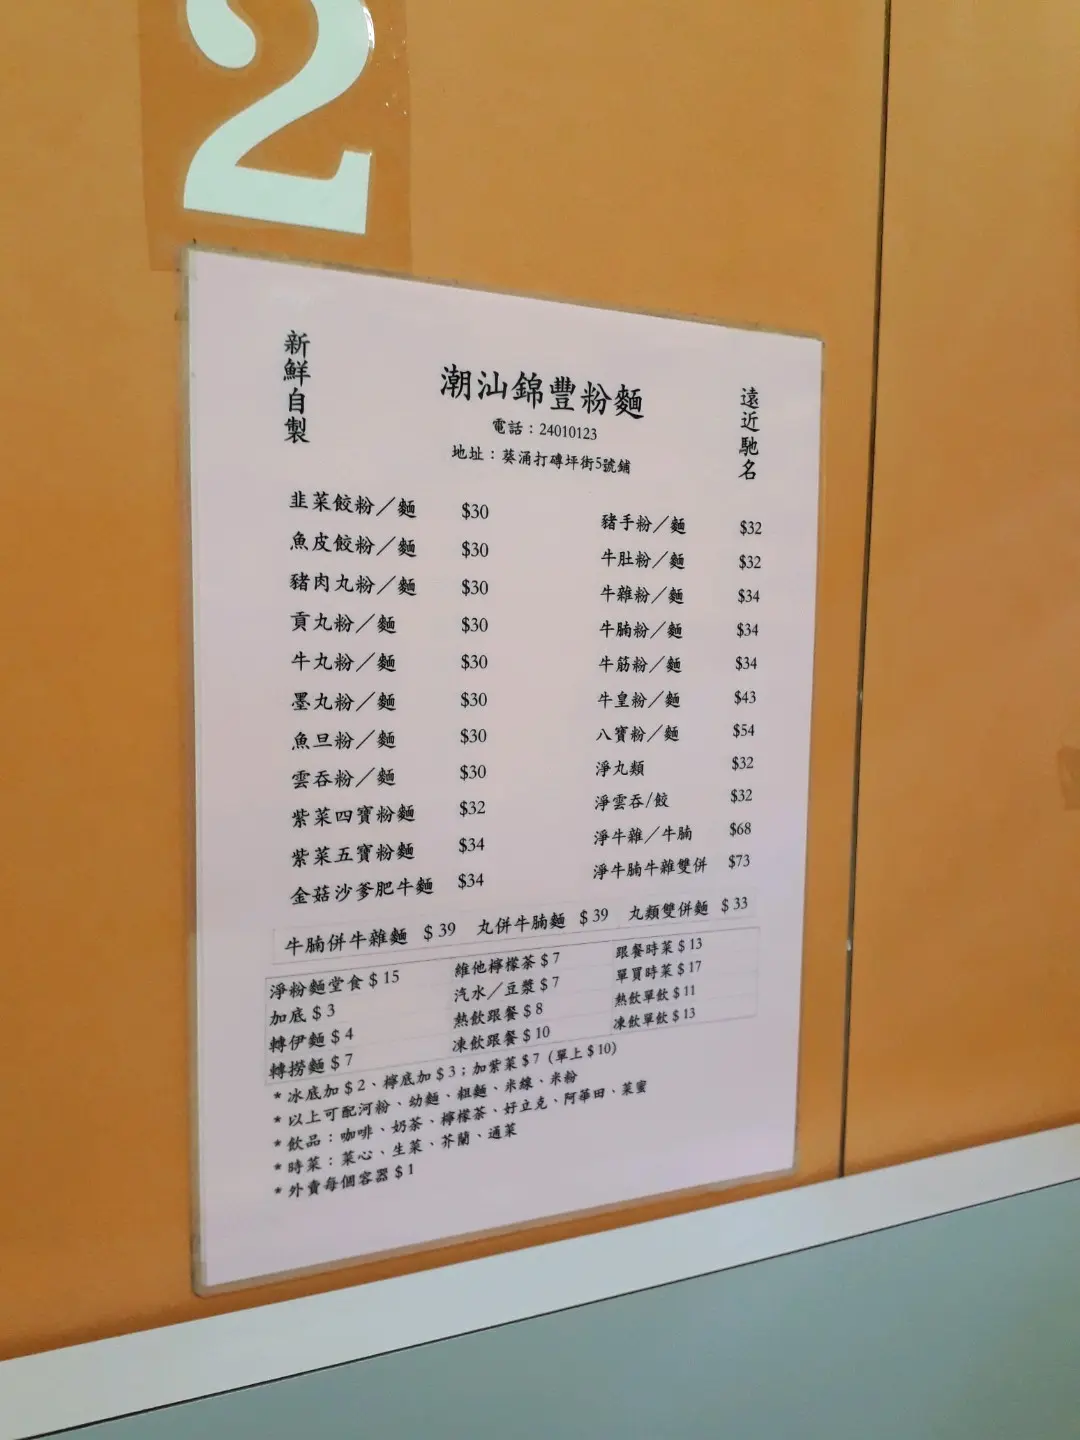 2
新鮮自製
潮汕錦豐粉麵
電話：24010123
地址：葵涌打磚坪街5號鋪
遠近馳名
韭菜餃粉／麵 $30
魚皮餃粉／麵 $30
豬肉丸粉／麵 $30
貢丸粉／麵 $30
牛丸粉／麵 $30
墨丸粉／麵 $30
魚旦粉／麵 $30
雲吞粉／麵 $30
紫菜四寶粉麵 $32
紫菜五寶粉麵 $34
金菇沙爹肥牛麵 $34
豬手粉／麵 $32
牛肚粉／麵 $32
牛雜粉／麵 $34
牛腩粉／麵 $34
牛筋粉／麵 $34
牛皇粉／麵 $43
八寶粉／麵 $54
淨丸類 $32
淨雲吞/餃 $32
淨牛雜／牛腩 $68
淨牛腩牛雜雙併 $73
牛腩併牛雜麵 $39 丸併牛腩麵 $39 丸類雙併麵 $33
淨粉麵堂食$15
加底$3
轉伊麵$4
轉撈麵$7
維他檸檬茶$7
汽水／豆漿$7
熱飲跟餐$8
凍飲跟餐$10
跟餐時菜$13
單買時菜$17
熱飲單飲$11
凍飲單飲$13
*冰底加$2、檸底加$3；加紫菜$7（單上$10）
*以上可配河粉、幼麵、粗麵、米線、米粉
*飲品：咖啡、奶茶、檸檬茶、好立克、阿華田、菜蜜
*時菜：菜心、生菜、芥蘭、通菜
*外賣每個容器$1